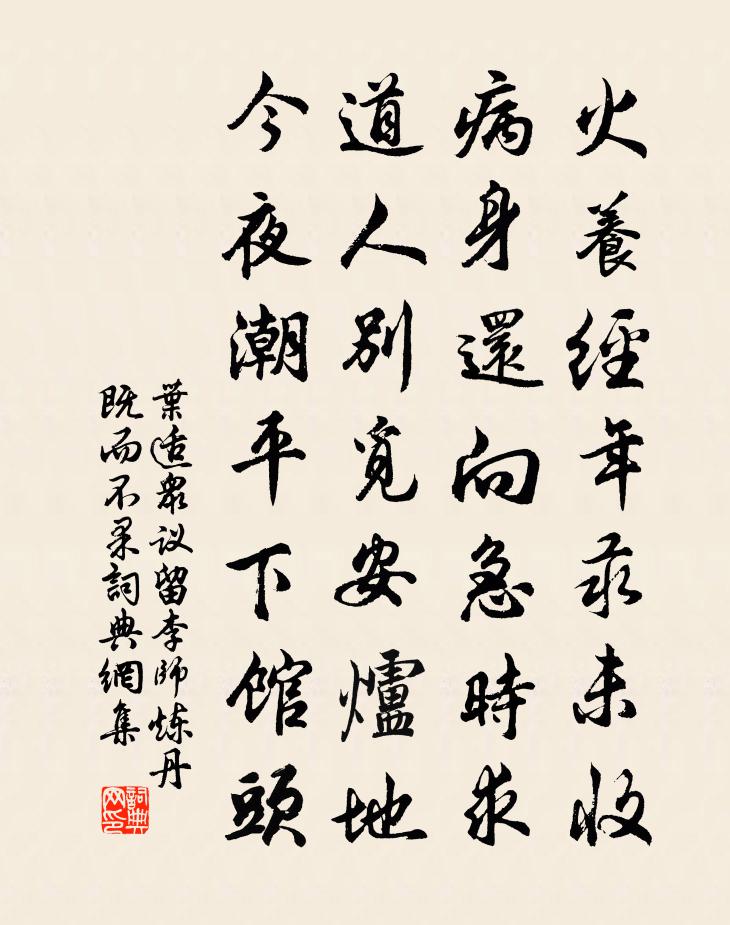 火養經年亦未收
病身還向急時求
道人別覓安爐地
今夜潮平下馆頭
葉适衆议留李师炼丹
既而不果詞典網集
詞典网印